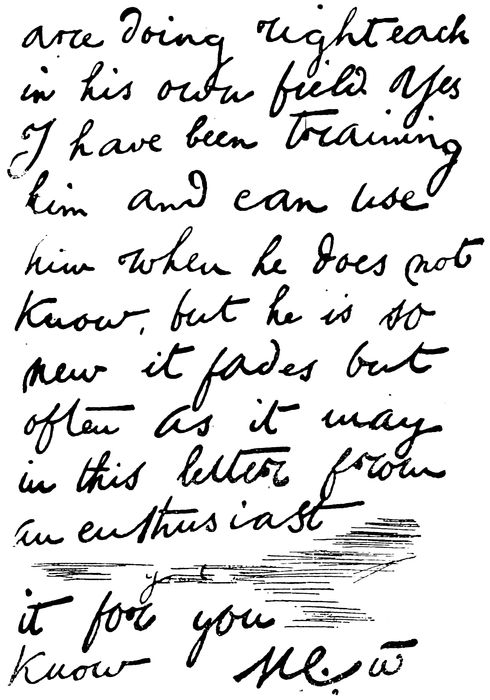 are doing right each
in his own field Yes
I have been training
him and can use
him when he does not
know, but he is so
new it fades but
often as it may
in this letter from
an enthusiast
it for you
know